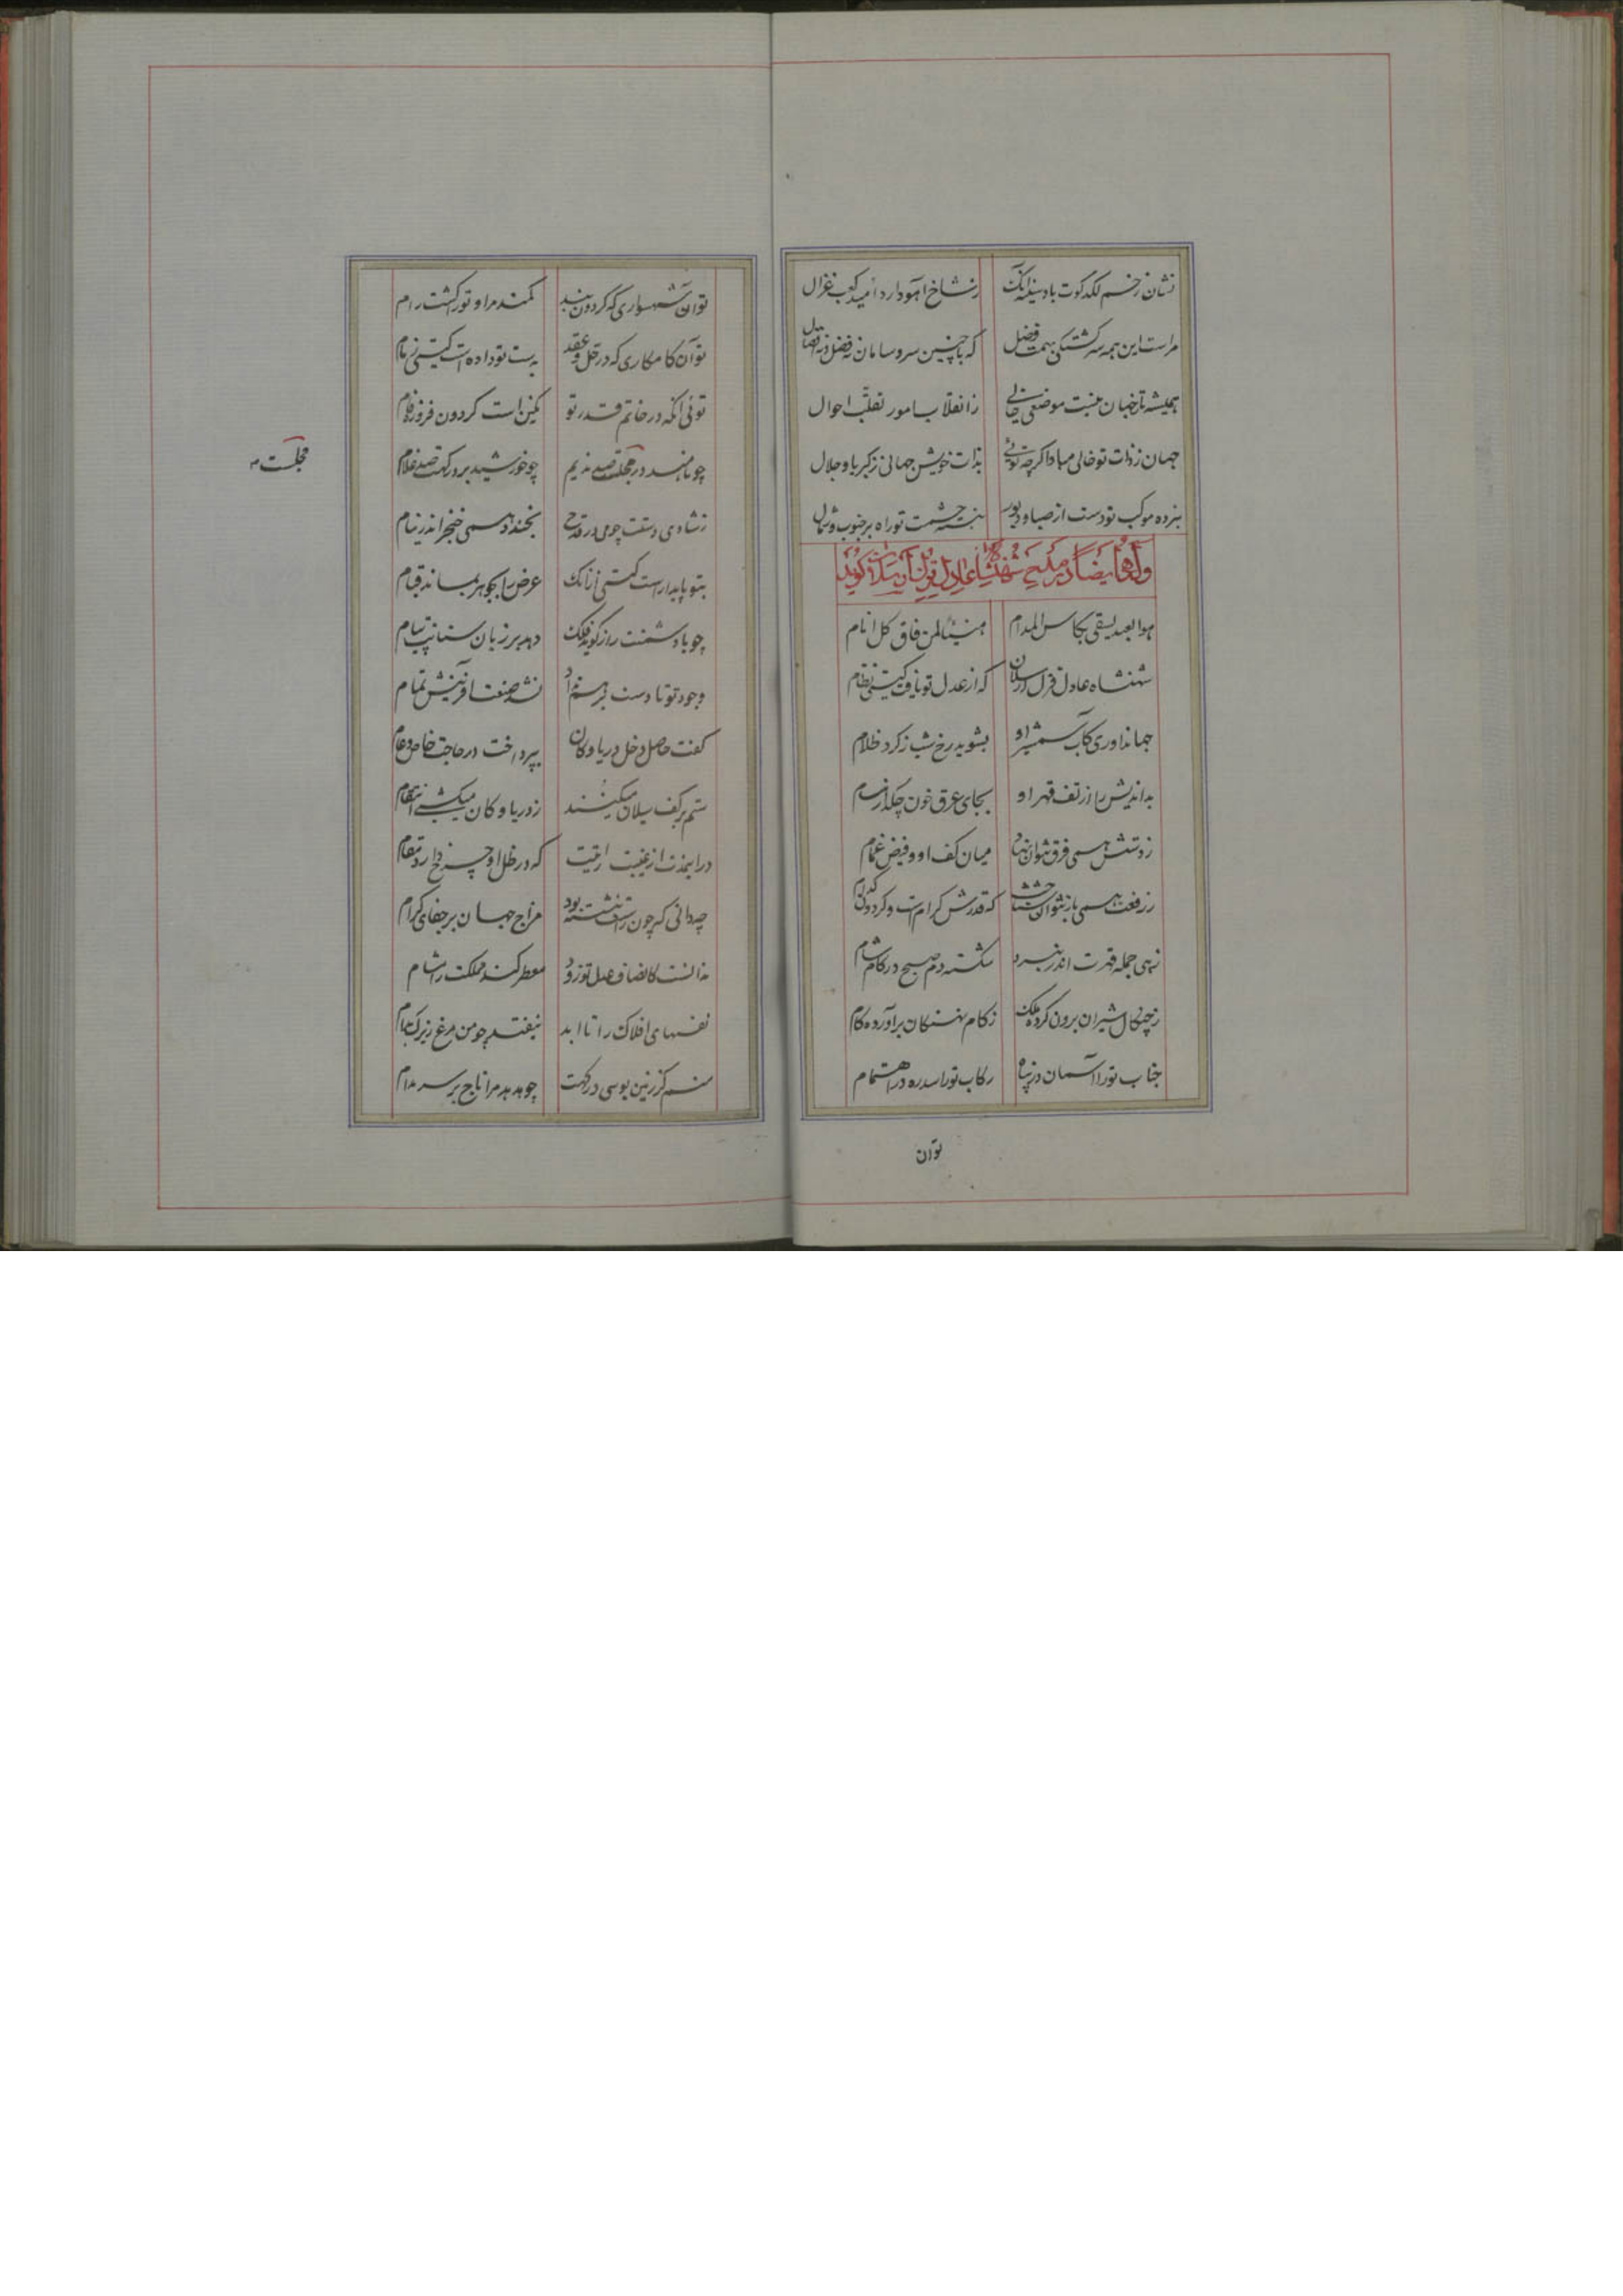 نشان زخم لکدکوت باد سینه آنک زشاخ اهو دارد امید کعب غزال
مراست این همه سرکشتکی بهمت فضل که با چنین سر و سامان نه فضل و نه افضال
همیشه تا جهان نیست موضعی خالی ز انقلاب امور تقلب احوال
جهان ز ذات تو خالی مبادا کر چه توئی بذات خویش جهانی ز کبریا و جلال
ببرده موکب تو دست از صبا و دبور ببسته حشمت تو راه بر جنوب و شمال
وله ایضا در مدح شهنشاه عادل قزل ارسلان کوید
هوا لعید یسقی بکاس المدام هنیئا لمن فاق کل انام
شهنشاه عادل قزل ارسلان که از عدل تو یافت کیتی نظام
جهانداوری کاب شمشیر او بشوید رخ شب ز کرد ظلام
بداندیش را از تف قهر او بجای عرق خون چکد از مسام
ز دستش همی فرق نتوان نهاد میان کف او و فیض غمام
ز رفعت همی باز نتوان شناخت که قدرش کدام است و کردون کدام
زهی حمله قهرت اندر نبرد شکسته دم صبح در کام شام
ز چنکال شیران برون کرده ملک ز کام نهنکان براورده کام
جناب تو را آسمان در پناه رکاب تو را سدره در اهتمام
توآن
توآن شهسواری که کردون تند کمند مراو تو را کشت رام
توآن کامکاری که در حل و عقد بدست تو داده است کیتی زمام
توئی انکه در خاتم قدر تو نکین است کردون فیروزه فام
چو ناهید در مجلست صد ندیم چو خورشید بر درکهت صد غلام
مجلست
ز شادی دستت چو می در قدح بخندد همی خنجر اندر نیام
بتو پایدار است کیتی از آنک عرض را بجوهر بماند قیام
چو با دشمنت راز کوید فلک دهد بر زبان سنانت پیام
وجود تو تا دست بر هم نداد نشد صنعت آفرینش تمام
کفت حاصل و دخل دریا و کان بپرداخت در حاجت خاص و عام
ستم بر کف سیلان میکند ز دریا و کان میکشی انتقام
که در ظل او چرخ دارد مقام
مزاج جهان بر جفای کرام
معطر کند مملکت را مشام
قفسهای افلاک را تا ابد نیفتد چو من مرغ زیرک بدام
منم کز زمین بوسی درکهت چو هدهد مرا تاج بر سر مدام